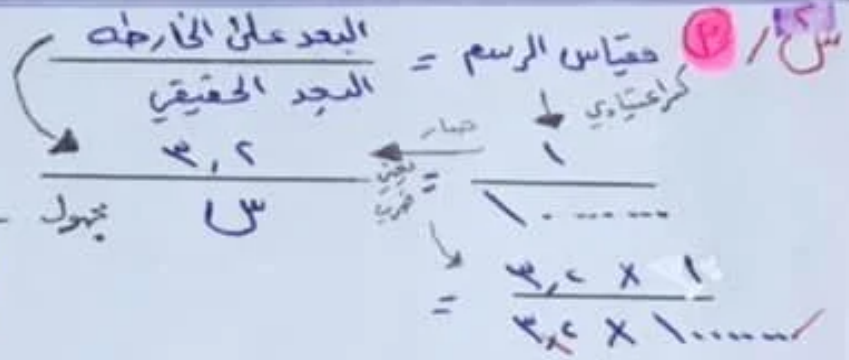 س٢/ ٣ مقياس الرسم = البعد على الخارطه / البعد الحقيقي
كسر اعتيادي
١ / ١٠٠٠٠٠٠ = ٣,٢ / س مجهول
يعني ضرب
= ١ × ٣,٢ / ١٠٠٠٠٠٠ × ٣,٢